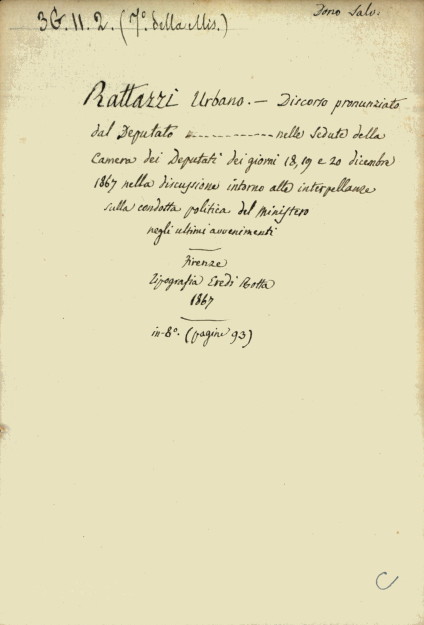 3G.11.2. (7º. della Mis.)
Dono Salv.
Rattazzi Urbano. — Discorso pronunziato
dal Deputato ------------ nelle Sedute della
Camera dei Deputati dei giorni 18, 19 e 20 dicembre
1867 nella discussione intorno alle interpellanze
sulla condotta politica del Ministero
negli ultimi avvenimenti
Firenze
Tipografia Eredi Botta
1867
in-8º. (pagine 93)
C